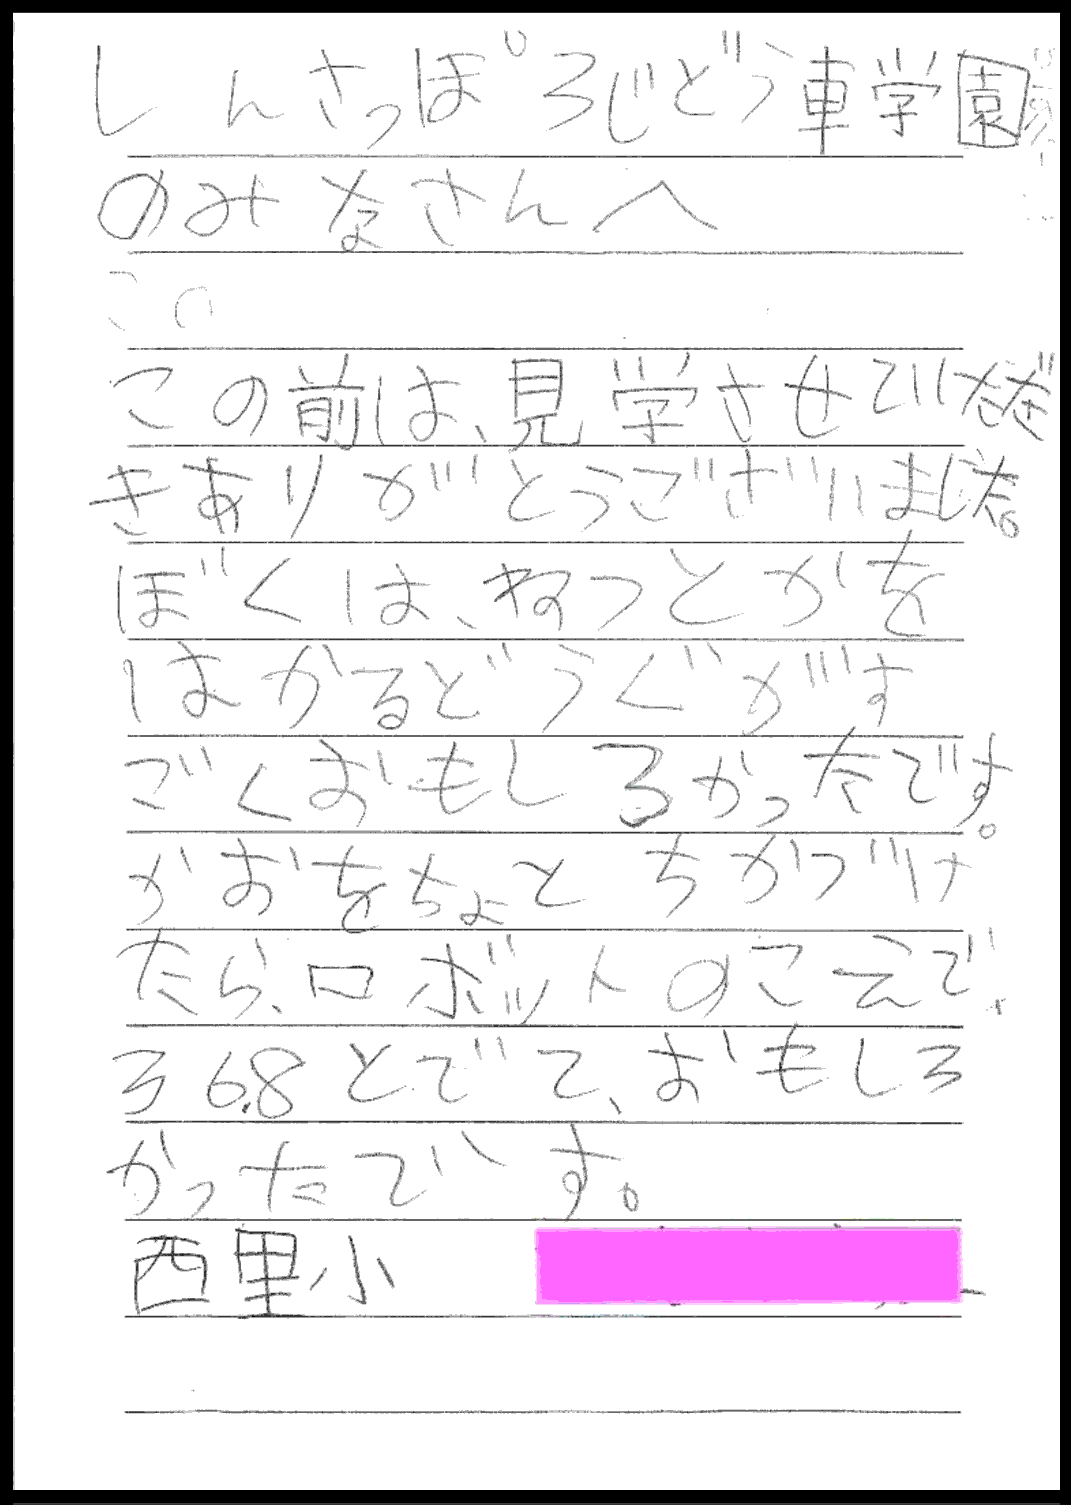 しんさっぽろじどう車学園
のみなさんへ
この前は、見学させていただ
きありがとうございました。
ぼくは、ねつとかを
はかるどうぐがす
ごくおもしろかったです。
かおをちょとちかづけ
たら、ロボットのこえで、
36.8とでて、おもしろ
かったです。
西里小